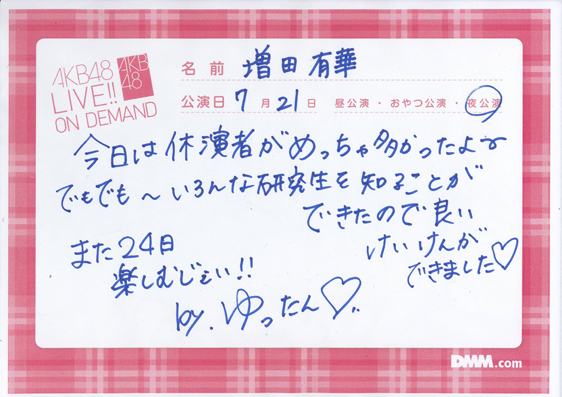 AKB48
LIVE!!
ON DEMAND
AKB
48
名前 増田有華
公演日 7月21日 昼公演・おやつ公演・夜公演
今日は休演者がめっちゃ多かったよー
でもでも〜いろんな研究生を知ることが
できたので良い
けいけんが
できました♡
また24日
楽しむじぇい!!
by.ゆったん♡
DMM.com